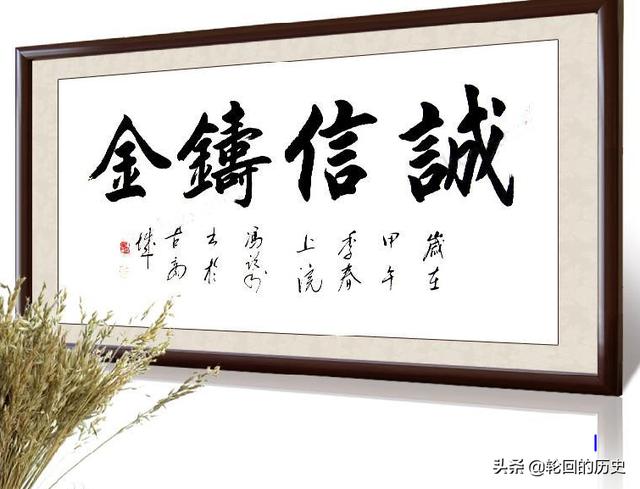 誠信鑄金
歲在
甲午
季春
上浣
书於
头条 @轮回的历史